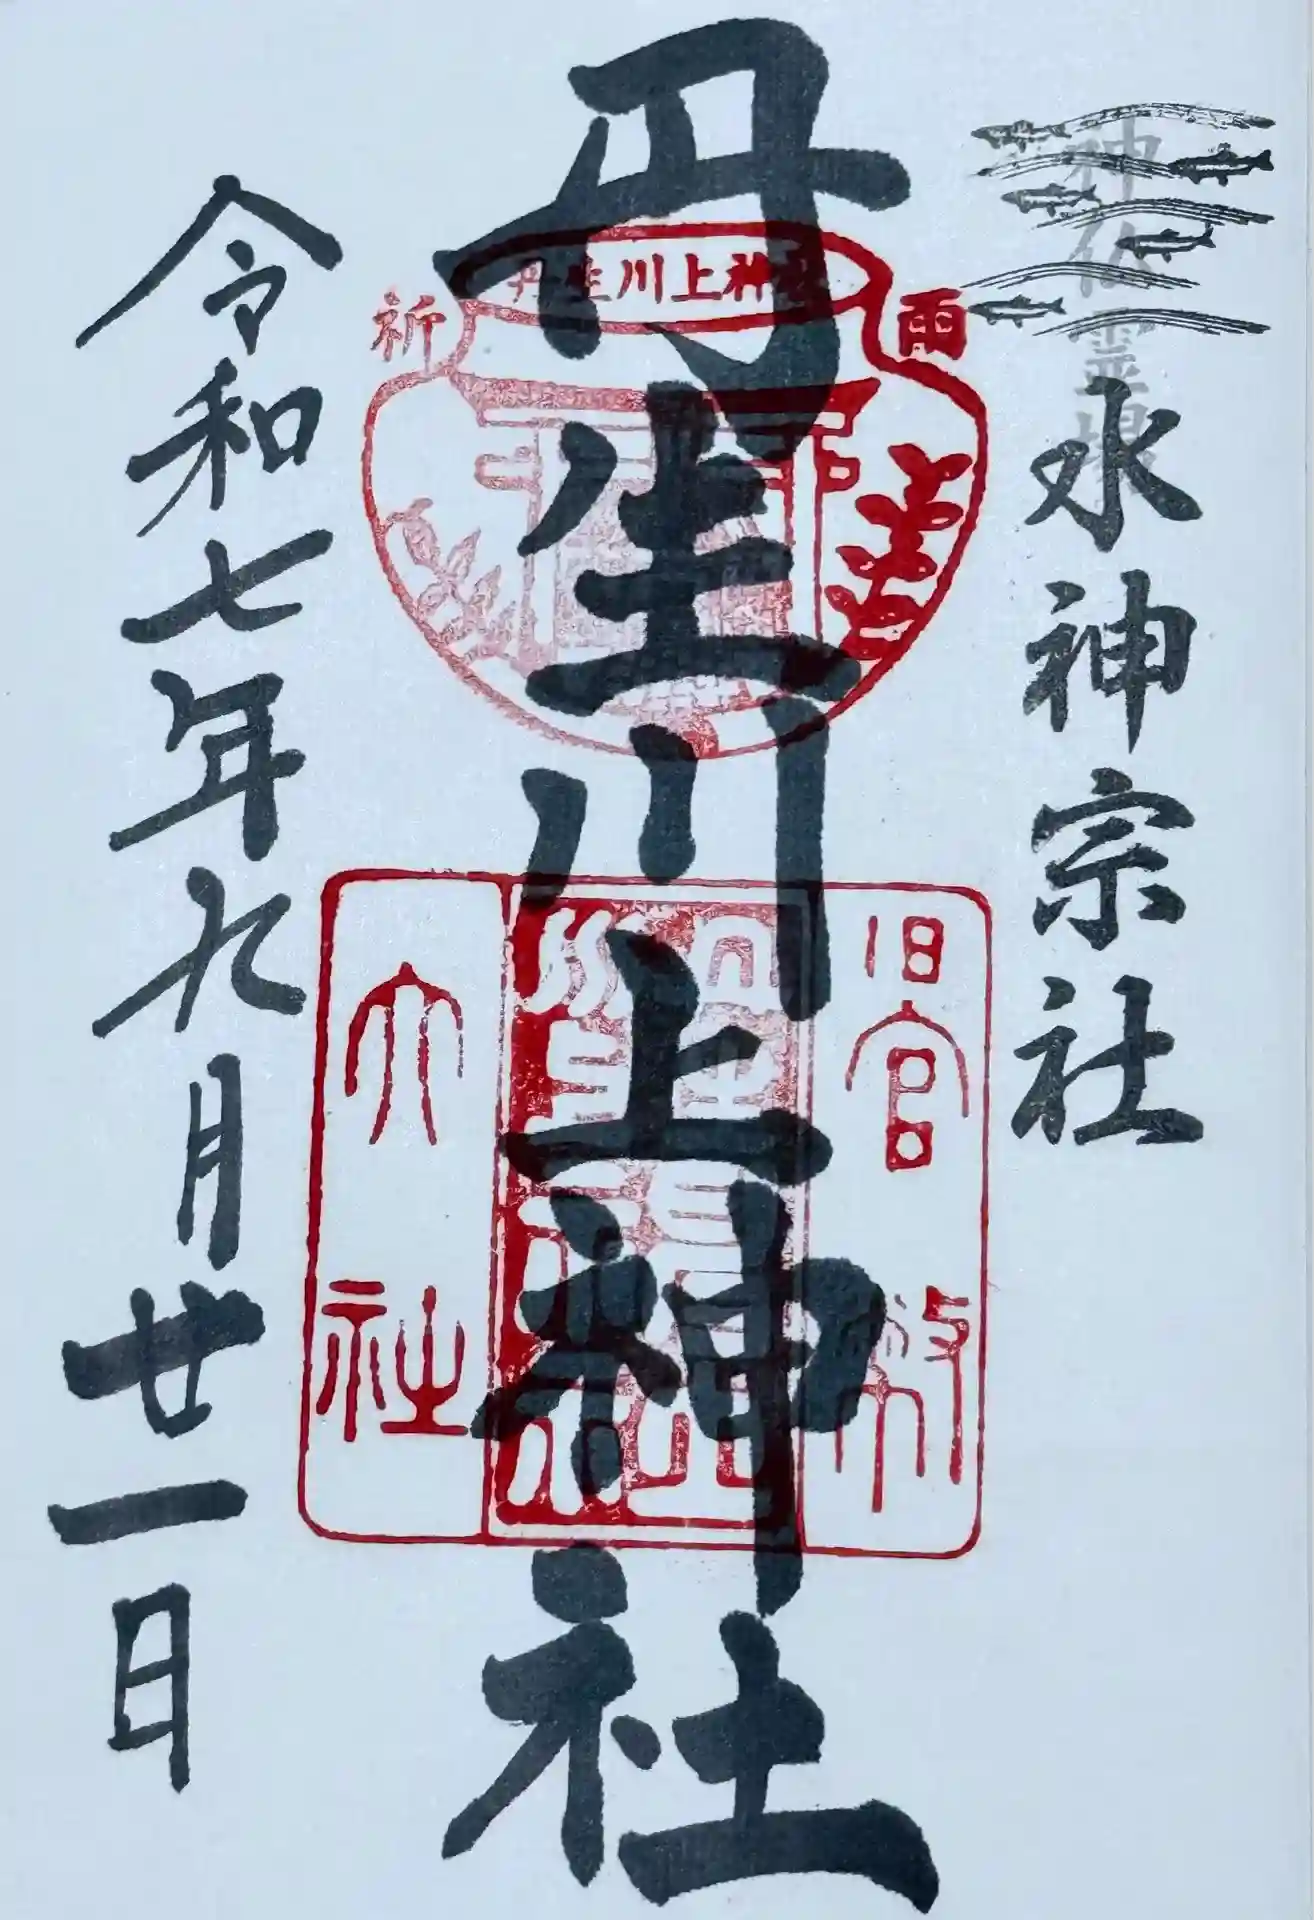 神仏霊場
水神宗社
丹生川上神社
丹生川上神社
祈雨
旧官幣
大社
令和七年九月廿一日